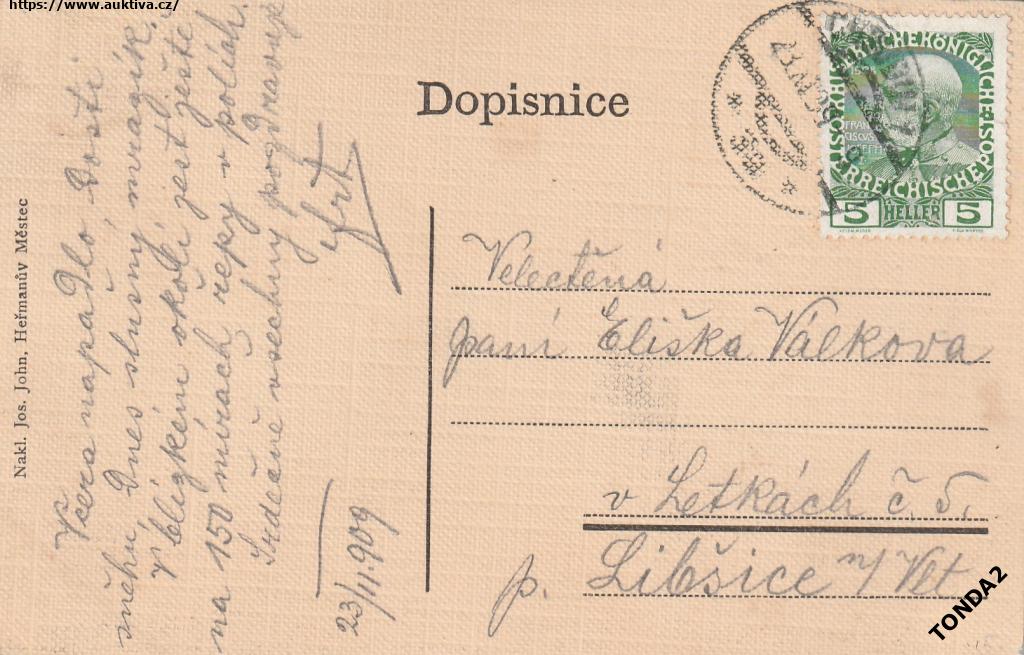 https://www.auktiva.cz/
Dopisnice
KAISERLICHE KÖNIGLICHE ÖSTERREICHISCHE POST
5 HELLER 5
Nakl. Jos. John, Heřmanův Městec
Včera napadlo dosti
sněhu, Dnes slušný mrazík.
V blízkém okolí jest ještě
na 150 mírách řepy v polích.
Srdečně všechny pozdravuje
23/11.909
Velectěná
paní Eliška Válkova
v Letkách č. 5.
p. Libšice n/ Vlt.
TONDA2